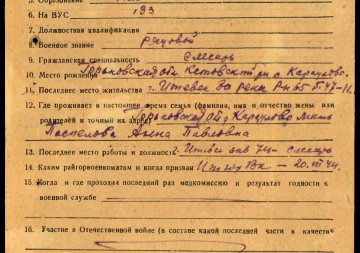 5. Образование
6. На ВУС 133
7. Должностная квалификация
8. Военное звание рядовой
9. Гражданская специальность слесарь
10. Место рождения Горьковская обл. Кстовский р-н с.
11. Последнее место жительства г. Ижевск
12. Где проживает в настоящее время семья (фамилия, имя и отчество жены или
родителей и точный их адрес) Горьковской о.
Поспелова Анна Павловна
13. Последнее место работы и должность г. Ижевск зав 74 - слесарь
14. Каким райгорвоенкоматом и когда призван 20.III 44.
15. Когда и где проходил последний раз медкомиссию и результат годности к
военной службе
16. Участие в Отечественной войне (в составе какой последней части и в качестве